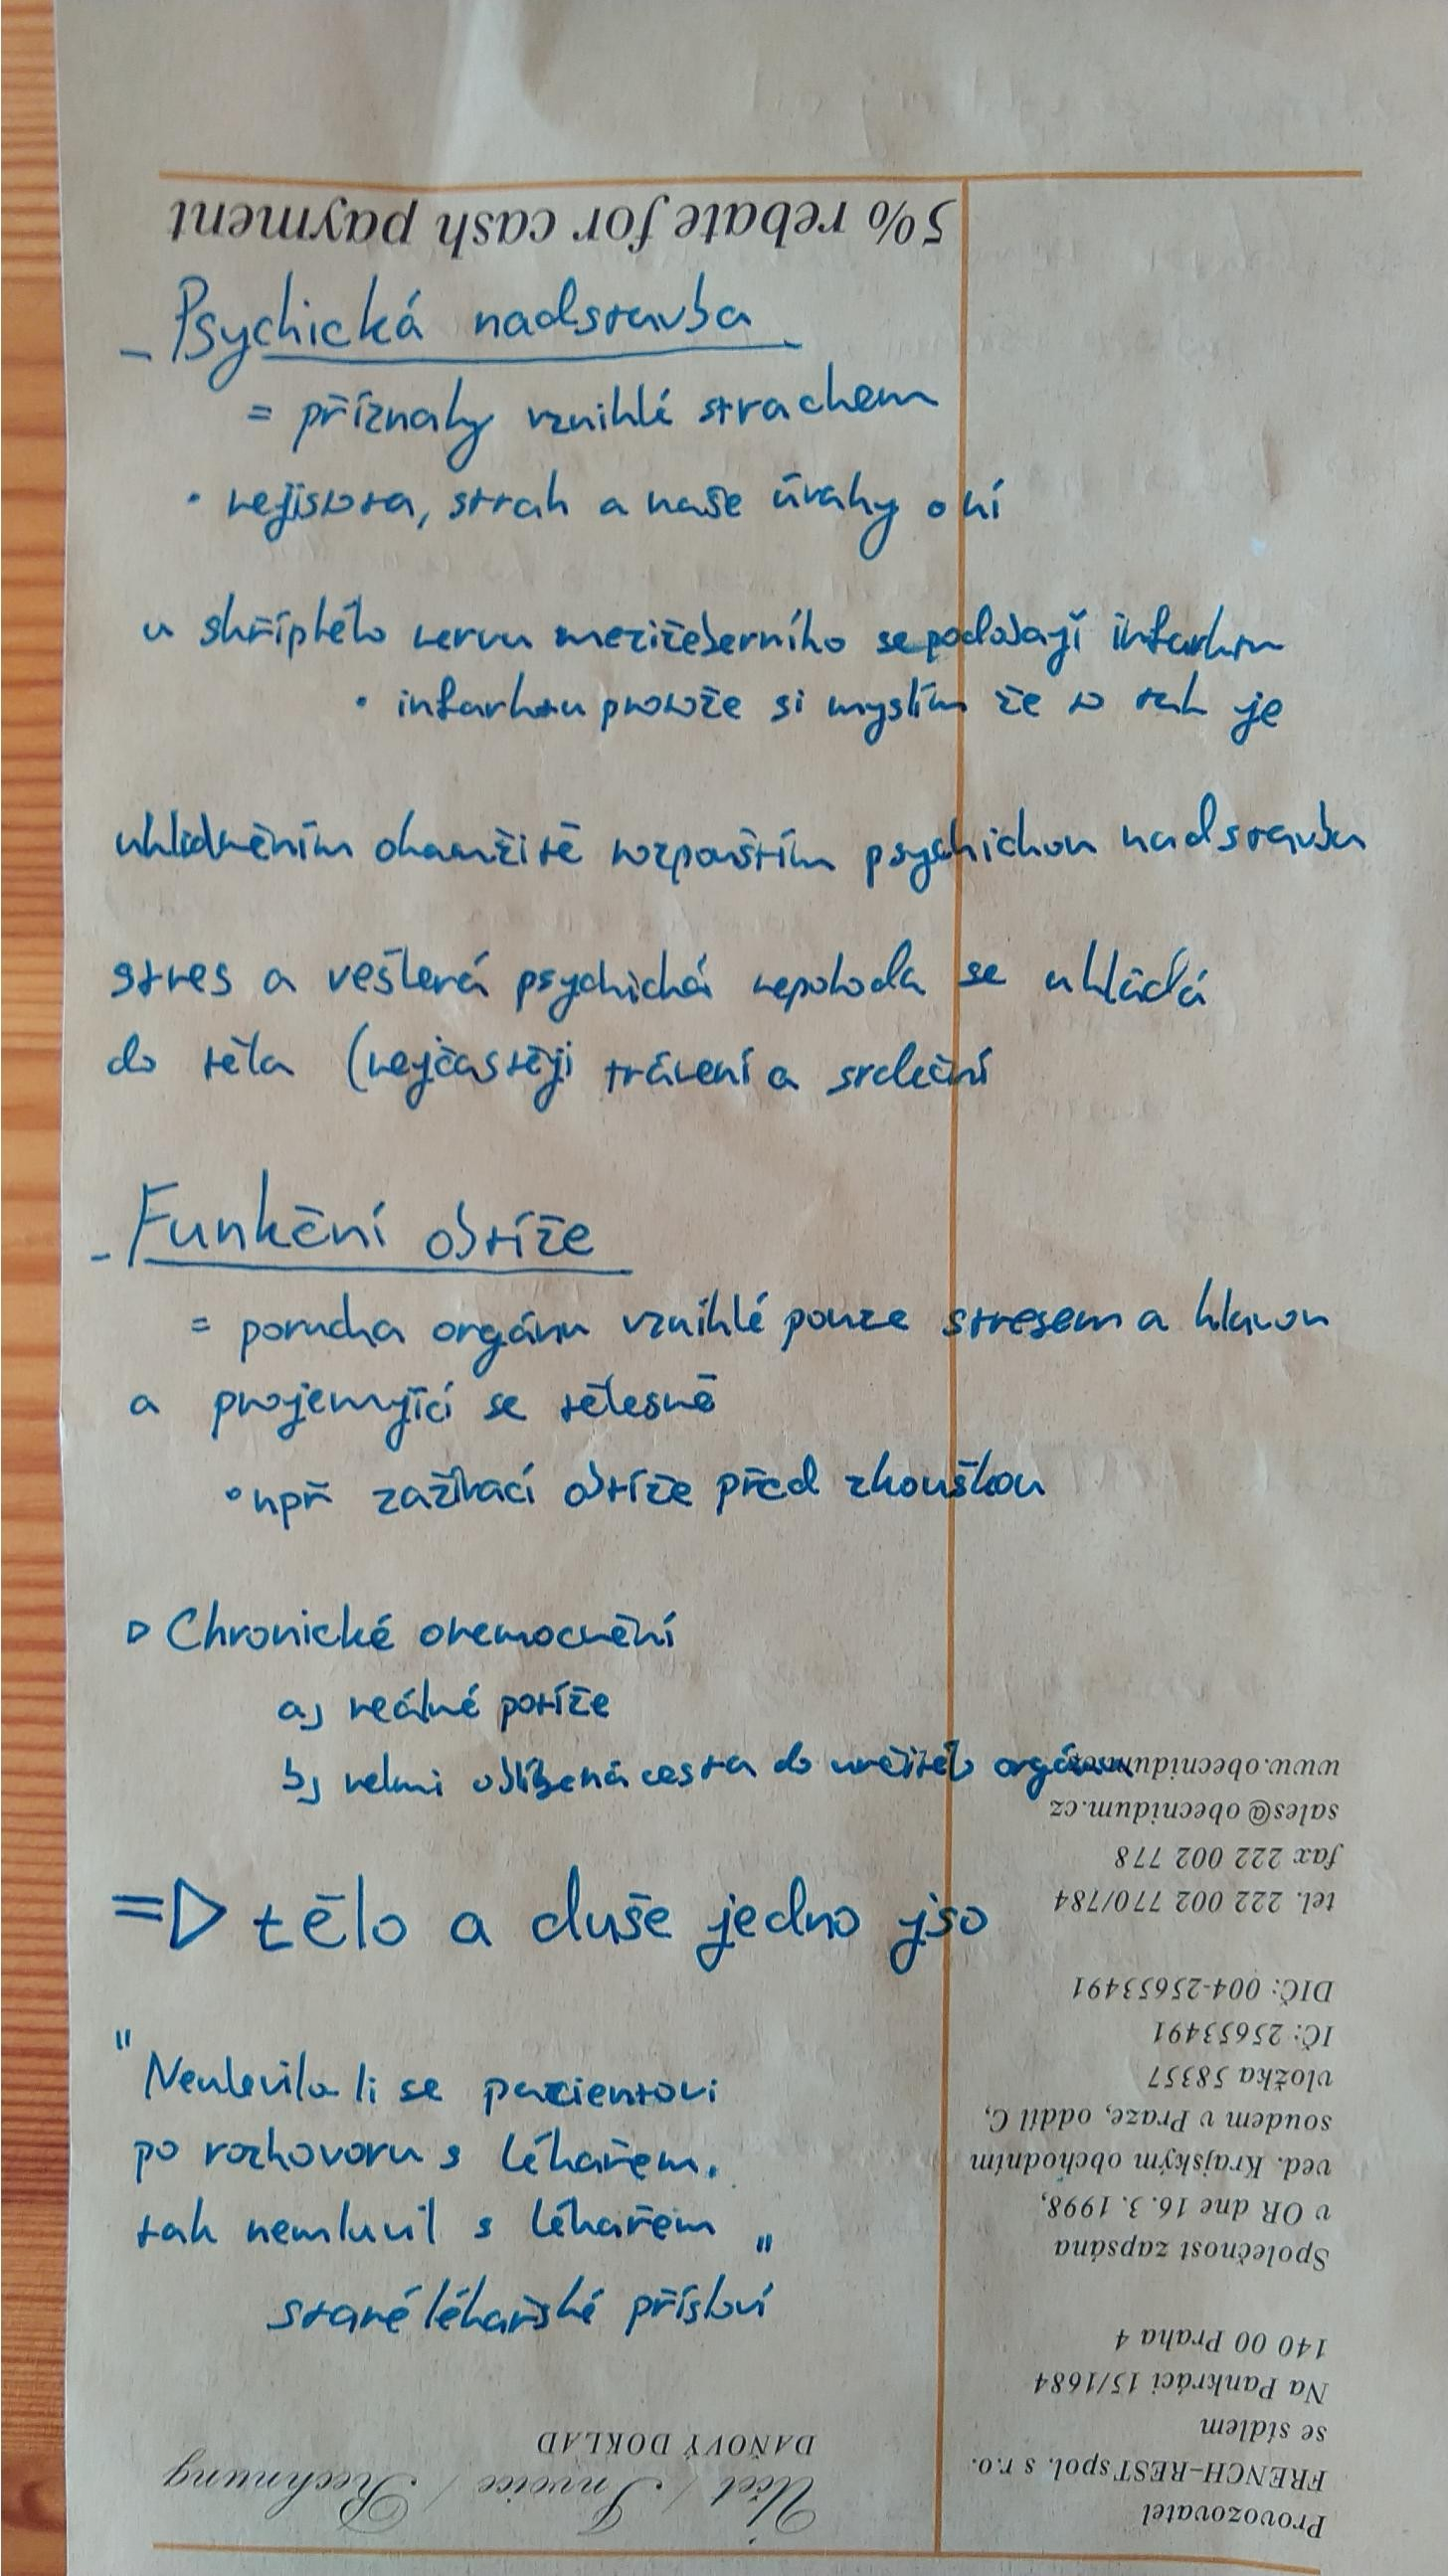 5% rebate for cash payment
- Psychická nadstavba
= příznaky vzniklé strachem
• nejistota, strach a naše úvahy o ní
u skříplého nervu mezižeberního se podobají infarktu
• infarktu protože si myslím že to tak je
uklidněním okamžitě rozpouštím psychickou nadstavbu
stres a veškerá psychická nepohoda se ukládá
do těla (nejčastěji trávení a srdeční
- Funkční obtíže
= porucha orgánu vzniklé pouze stresem a hlavou
a projemující se tělesně
• např zažívací obtíže před zkouškou
▷ Chronické onemocnění
a) reálné potíže
b) velmi oblíbená cesta do určitého orgánu
=▷ tělo a duše jedno jso
"Neulevilo li se pacientovi
po rozhovoru s lékařem.
tak nemluvil s lékařem "
staré lékařské přísloví
www.obecnidum.cz
sales@obecnidum.cz
fax 222 002 778
tel. 222 002 770/784
DIČ: 004-25653491
IČ: 25653491
vložka 58357
soudem v Praze, oddíl C,
ved. Krajským obchodním
v OR dne 16. 3. 1998,
Společnost zapsána
140 00 Praha 4
Na Pankráci 15/1684
se sídlem
FRENCH-REST spol. s r.o.
Provozovatel
DAŇOVÝ DOKLAD
Účet / Invoice / Rechnung